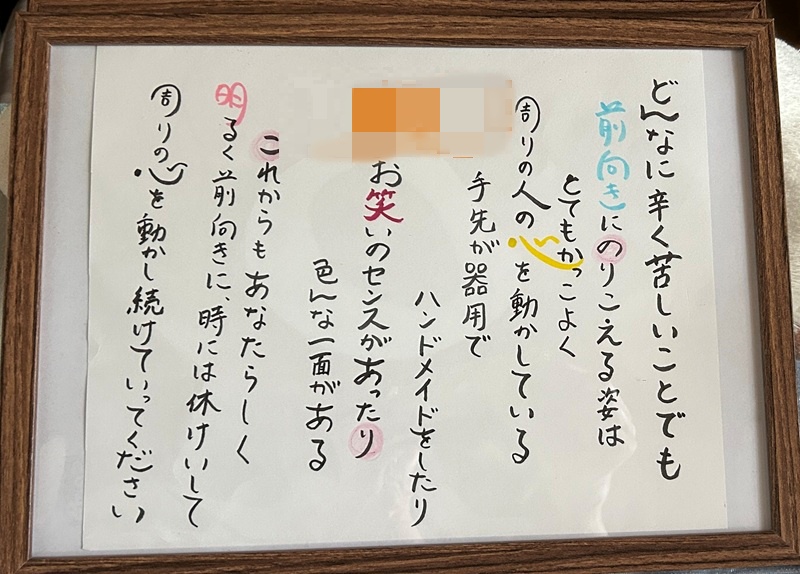 どんなに辛く苦しいことでも
前向きにのりこえる姿は
とてもかっこよく
周りの人の心を動かしている
手先が器用で
ハンドメイドをしたり
お笑いのセンスがあったり
色んな一面がある
これからもあなたらしく
明るく前向きに、時には休けいして
周りの心を動かし続けていってください